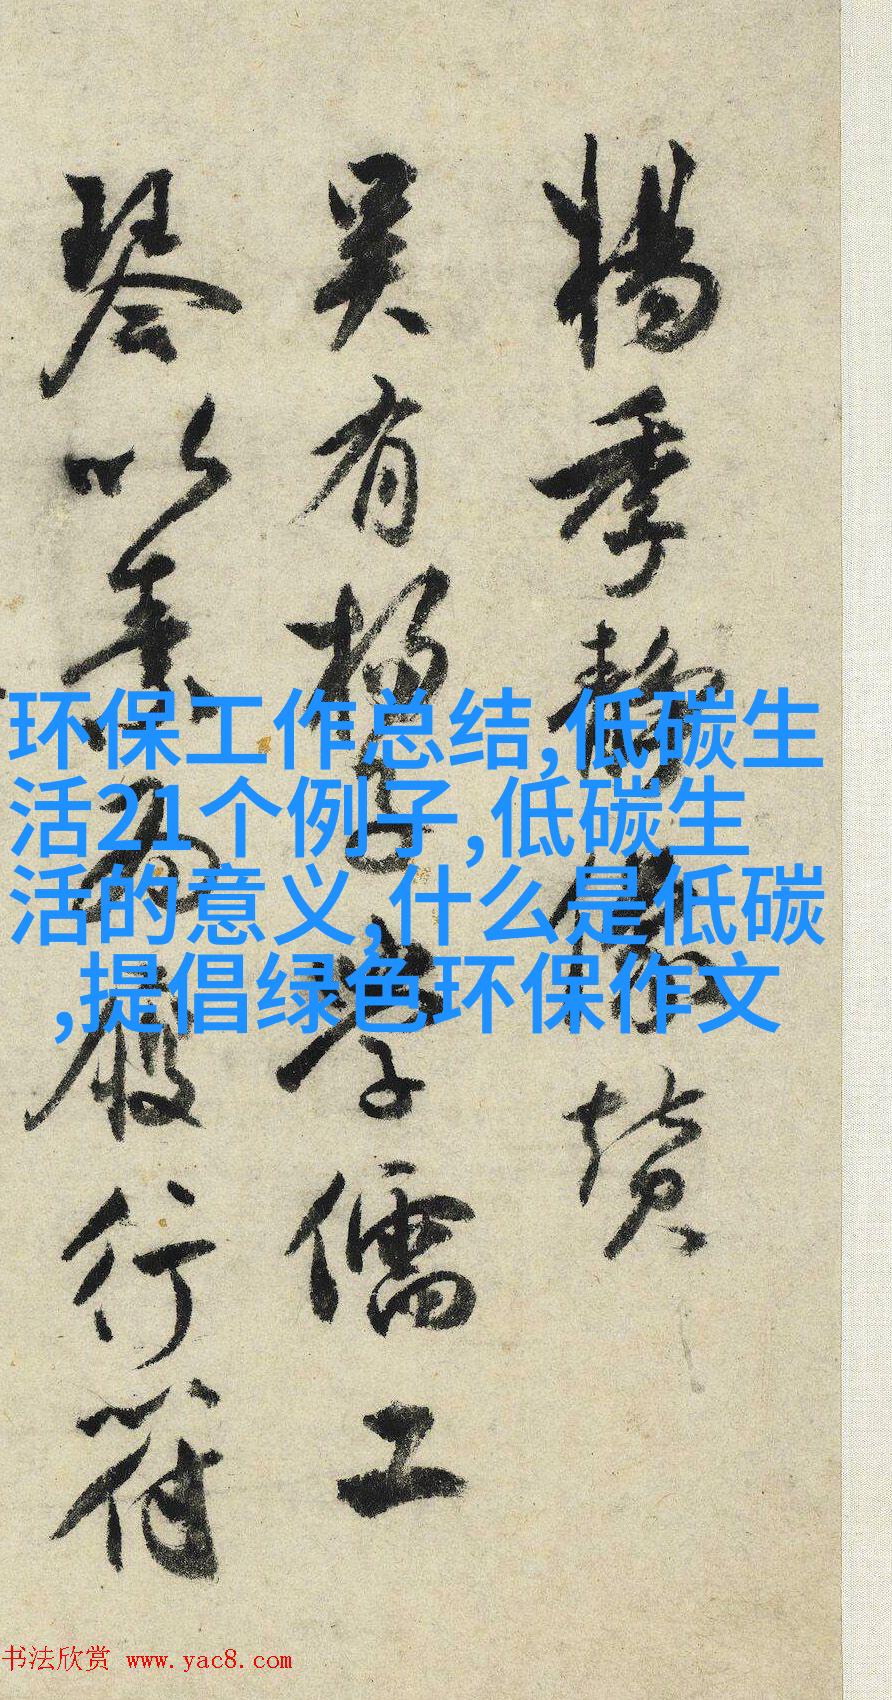 楊季静像贊
吴有楊子学儒工
琴以養而殷行符
环保工作总结,低碳生
活21个例子,低碳生
活的意义,什么是低碳
,提倡绿色环保作文
书法欣赏 www.yac8.com